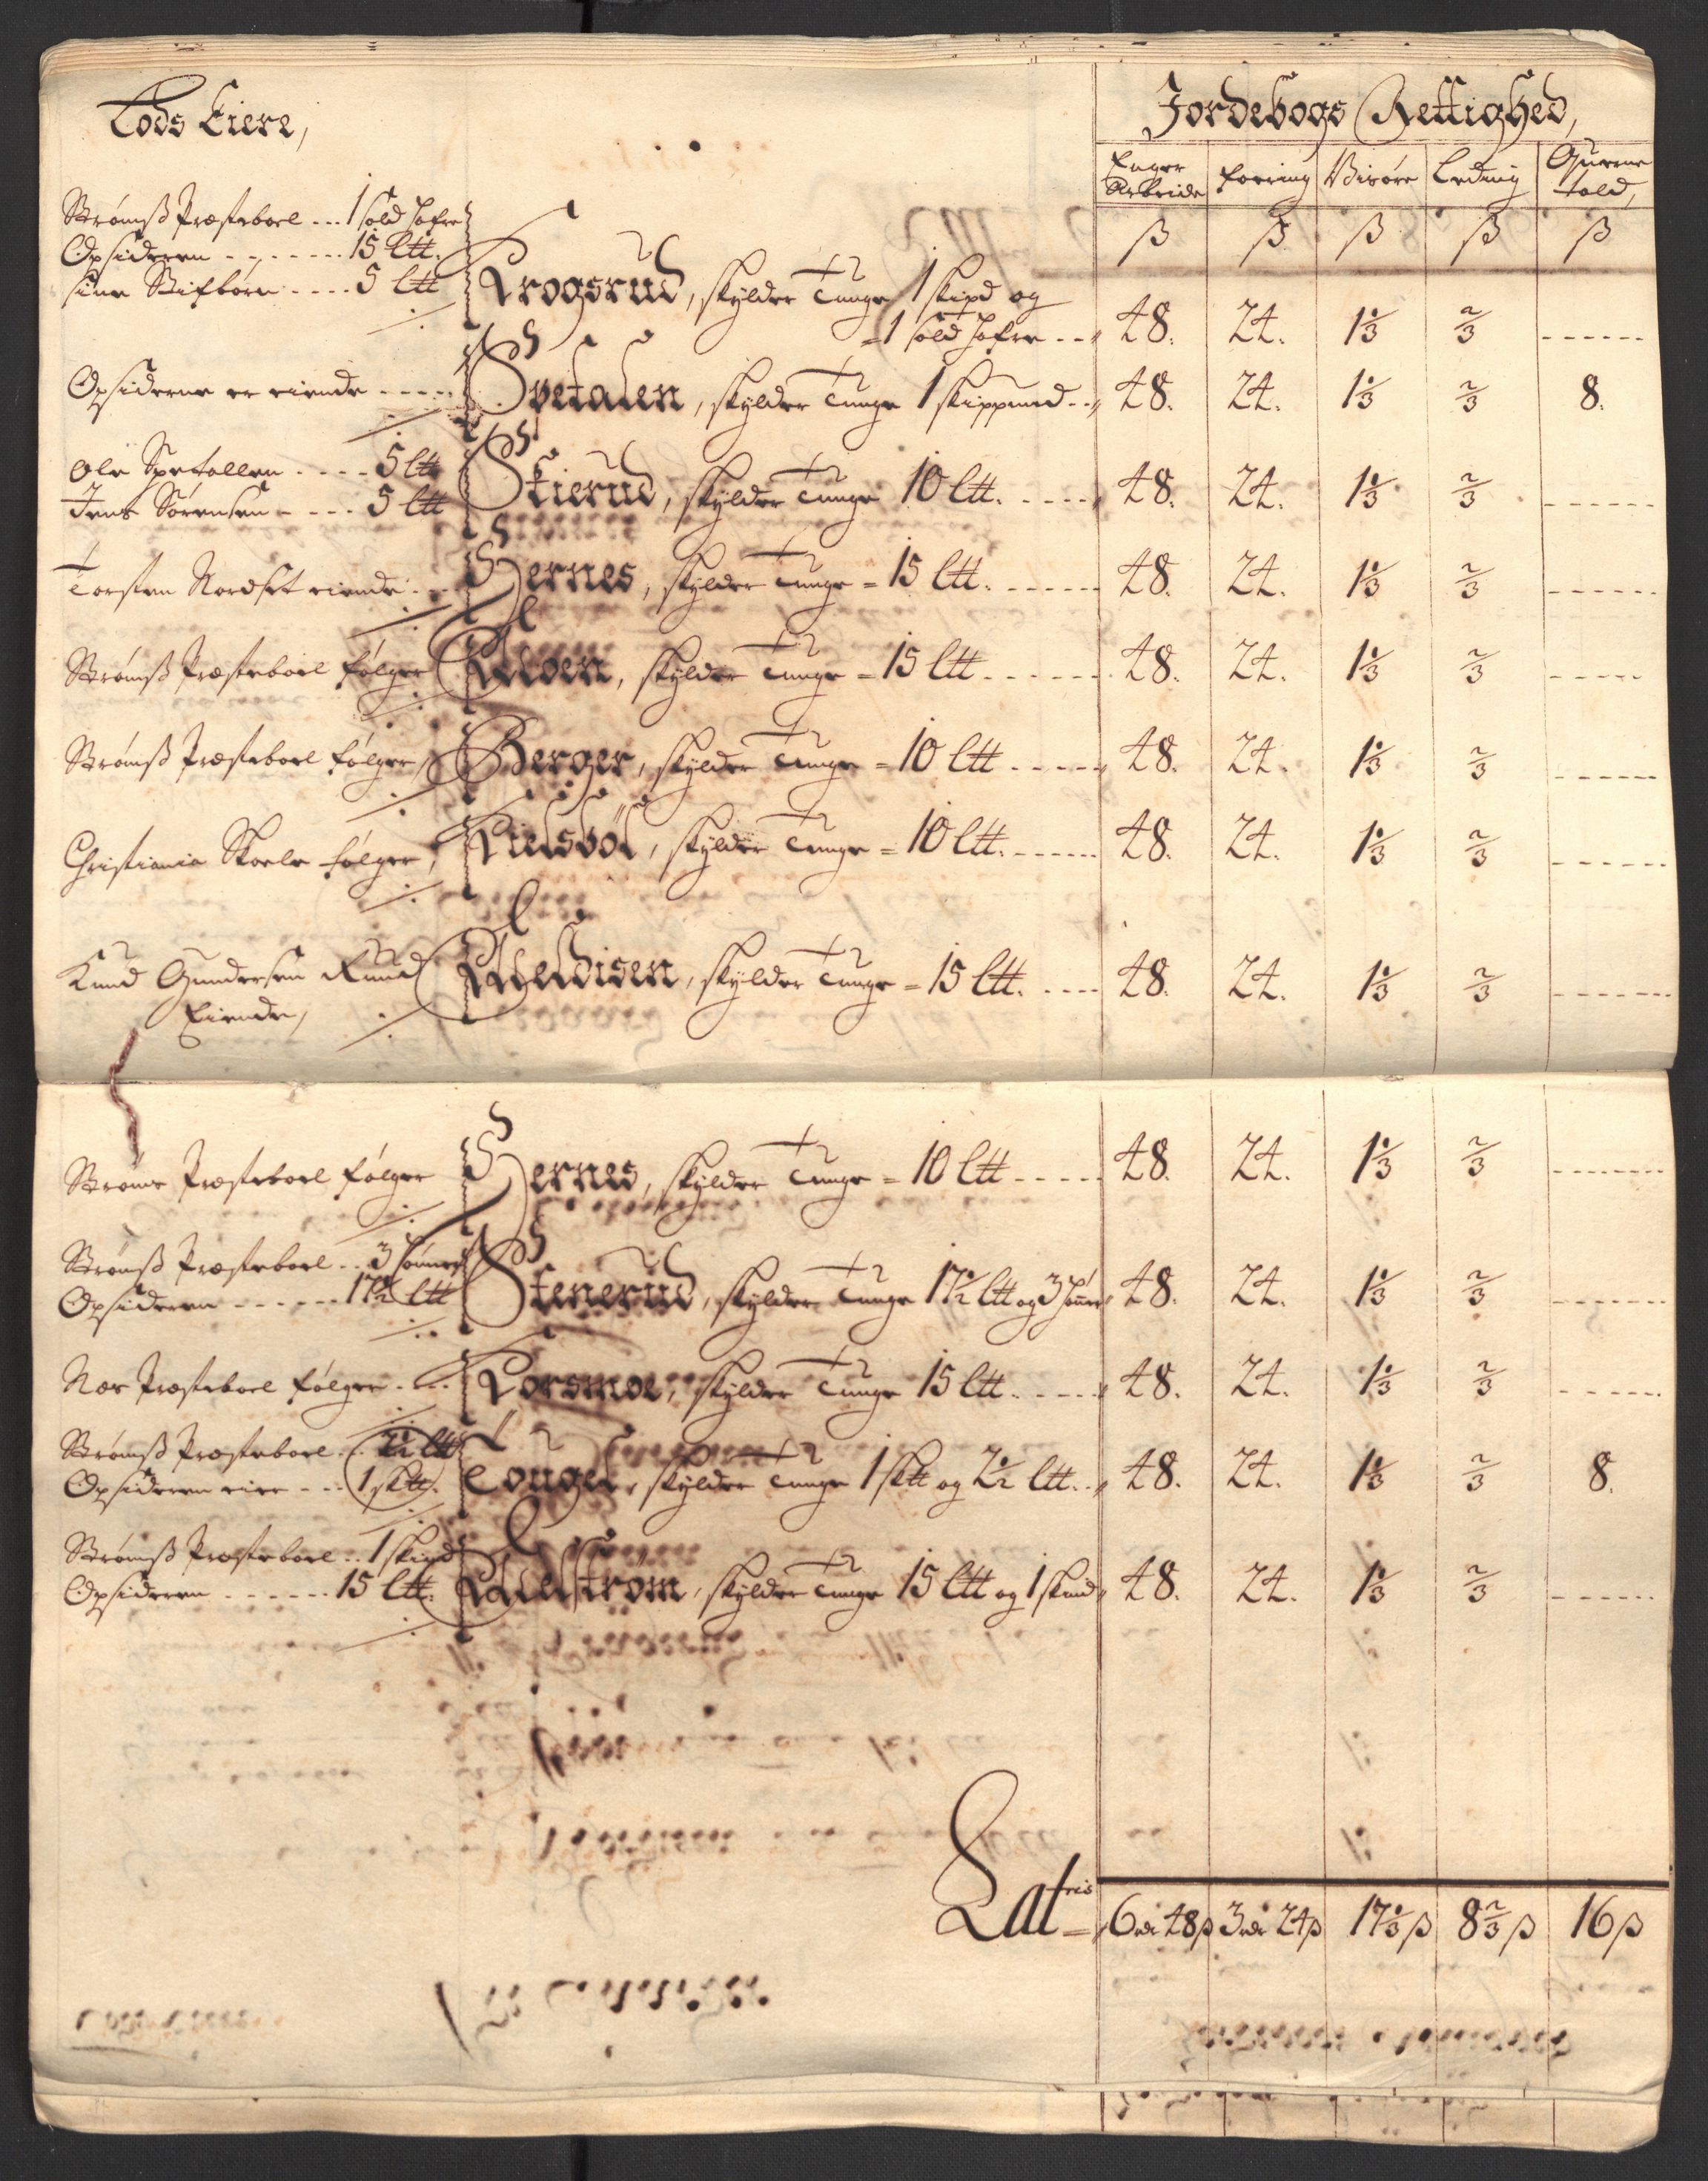 Lods Eiere,
Jordebogs Rettighed,
Enger Arbeide
Foering
Visöre
Leding
Qverne told,
ß ß ß ß ß
Strømsß Præsteboel ... 1 sold hafre
Opsideren ------ 15 Ltt.
sine Stifbörn ---- 5 Ltt
Krogsrud, skylder Tunge 1 skipd og
= 1 sold hafre -- 48. 24. 1⅓ ⅔ ------
Opsiderne er eiende ----- Spetalen, skylder Tunge 1 skippund -- 48. 24. 1⅓ ⅔ 8.
Ole Spetallen ---- 5 Ltt
Jens Sørensen ---- 5 Ltt
Skierud, skylder Tunge 10 Ltt. ---- 48. 24. 1⅓ ⅔ ------
Torsten Nordset eiende -- Hernes, skylder Tunge = 15 Ltt. ------ 48. 24. 1⅓ ⅔ ------
Strømsß Præsteboel følger skylder Tunge = 15 Ltt ------ 48. 24. 1⅓ ⅔ -----
Strømsß Præsteboel følger, Berger, skylder Tunge = 10 Ltt ----- 48. 24. 1⅓ ⅔ ------
Christiania Skoele følger, Kielsböl, skylder Tunge = 10 Ltt. ------ 48. 24. 1⅓ ⅔ ------
Knud Gundersen Ruud
Eiende,
skylder Tunge = 15 Ltt. ---- 48. 24. 1⅓ ⅔ ------
Strøms Præsteboel følger Hernes, skylder Tunge = 10 Ltt ----- 48. 24. 1⅓ ⅔ ------
Strømsß Præsteboel .. 3
Opsideren ------ 17½ Ltt
Stenerud, skylder Tunge 17½ Ltt og 3 48. 24. 1⅓ ⅔ ------
Nes Præsteboel følger .... Korsmoe, skylder Tunge 15 Ltt. ----- 48. 24. 1⅓ ⅔ ------
Strømsß Præsteboel .. 2½ Ltt
Opsideren eier --- 1 sktt.
Tougel, skylder Tunge 1 sktt og 2½ Ltt. .. 48. 24. 1⅓ ⅔ 8.
Strømsß Præsteboel .. 1 skind
Opsideren ------ 15 Ltt.
skylder Tunge 15 Ltt og 1 skind 48. 24. 1⅓ ⅔ ------
Latris = 6 rdr 48ß 3 rdr 24ß 17⅓ß 8⅔ß 16ß